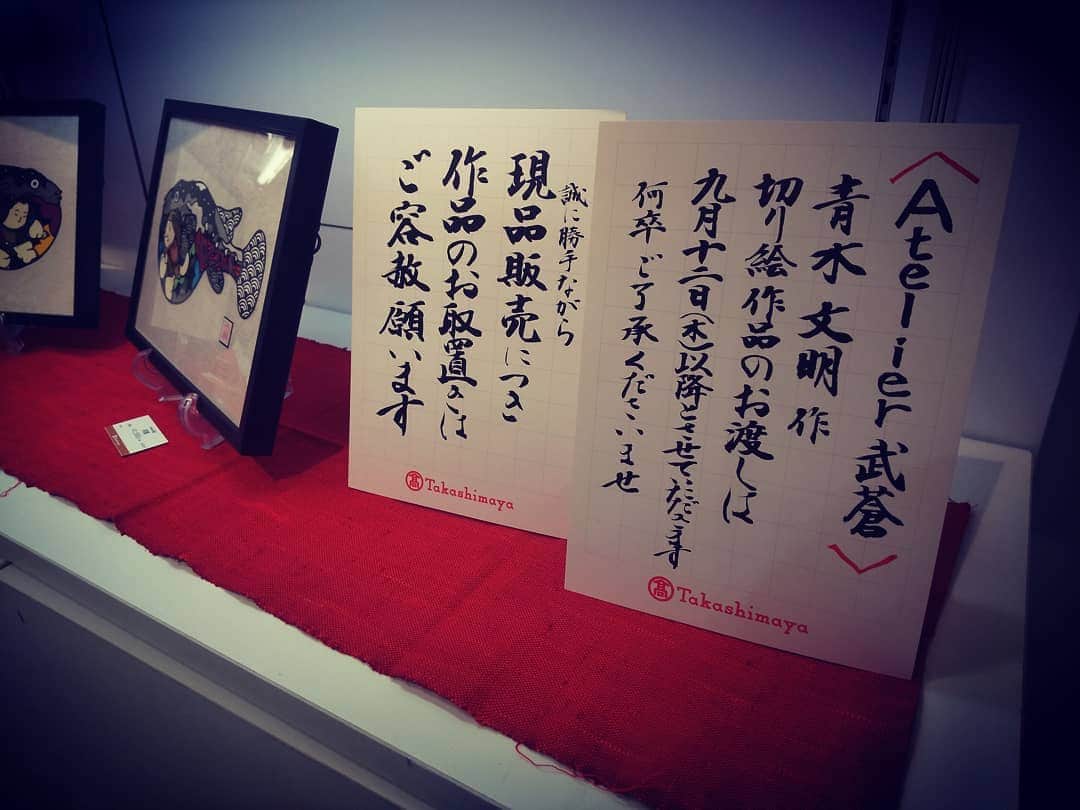 〈Atelier 武蒼〉
青木 文明 作
切り絵作品のお渡しは
九月十二日(木)以降とさせてただきます
何卒ご了承くださいませ
Takashimaya
誠に勝手ながら
現品販売につき
作品のお取置きは
ご容赦願います
Takashimaya